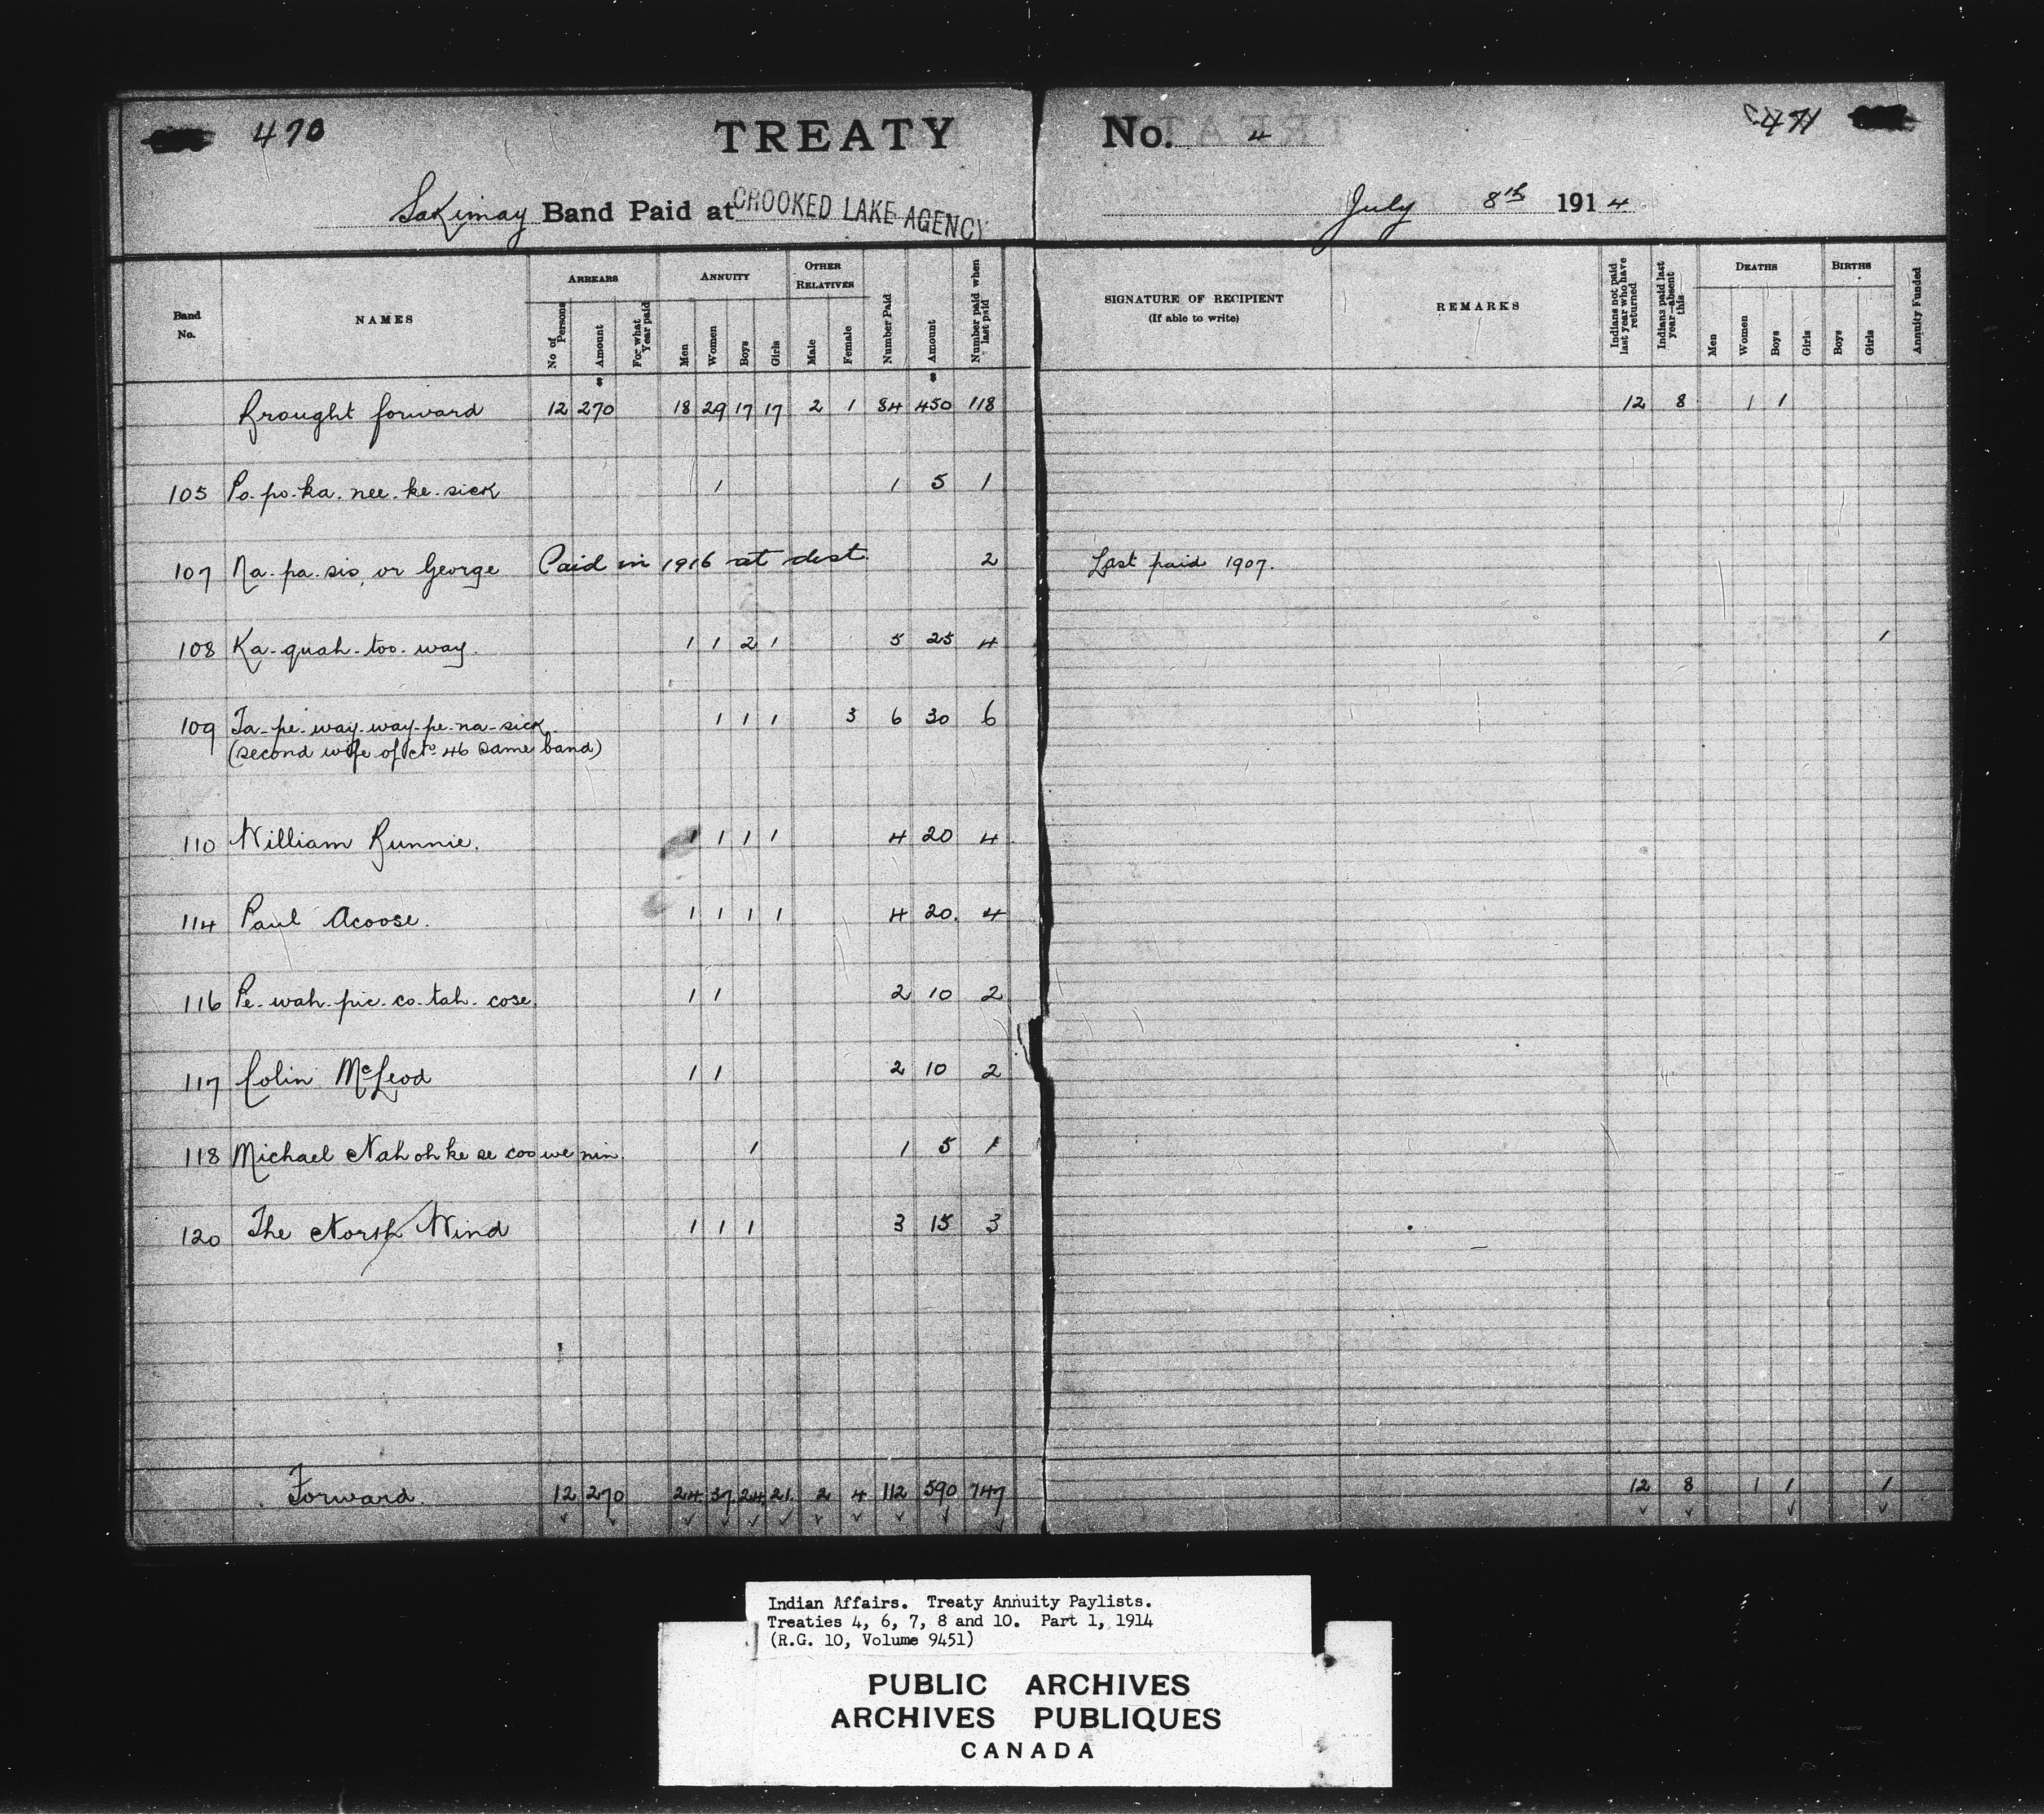 470 TREATY No. 4 471
Sakimay Band Paid at CROOKED LAKE AGENCY July 8th 1914
Band No. NAMES ARREARS No of Persons Amount For what Year paid ANNUITY Men Women Boys Girls OTHER RELATIVES Male Female Number Paid Amount Number paid when last paid SIGNATURE OF RECIPIENT (If able to write) REMARKS Indians not paid last year who have returned Indians paid last year—absent this DEATHS Men Women Boys Girls BIRTHS Boys Girls Annuity Funded
$ $
Brought forward 12 270 18 29 17 17 2 1 84 450 118 12 8 1 1
105 Po-po-ka-nee-ke-sick 1 1 5 1
107 Na-pa-sis, or George Paid in 1916 at dest. 2 Last paid 1907.
108 Ka-quah-too-way. 1 1 2 1 5 25 4 1
109 Ta-pe-way-way-pe-na-sick 1 1 1 3 6 30 6
(second wife of No 46 same band)
110 William Bunnie. 1 1 1 1 4 20 4
114 Paul Acoose. 1 1 1 1 4 20. 4
116 Pe-wah-pic-co-tah-cose. 1 1 2 10 2
117 Colin McLeod 1 1 2 10 2
118 Michael Nah oh ke se coo we nin. 1 1 5 1
120 The North Wind 1 1 1 3 15 3
Forward. 12 270 24 37 24 21. 2 4 112 590 147 12 8 1 1 1
Indian Affairs. Treaty Annuity Paylists.
Treaties 4, 6, 7, 8 and 10. Part 1, 1914
(R.G. 10, Volume 9451)
PUBLIC ARCHIVES
ARCHIVES PUBLIQUES
CANADA